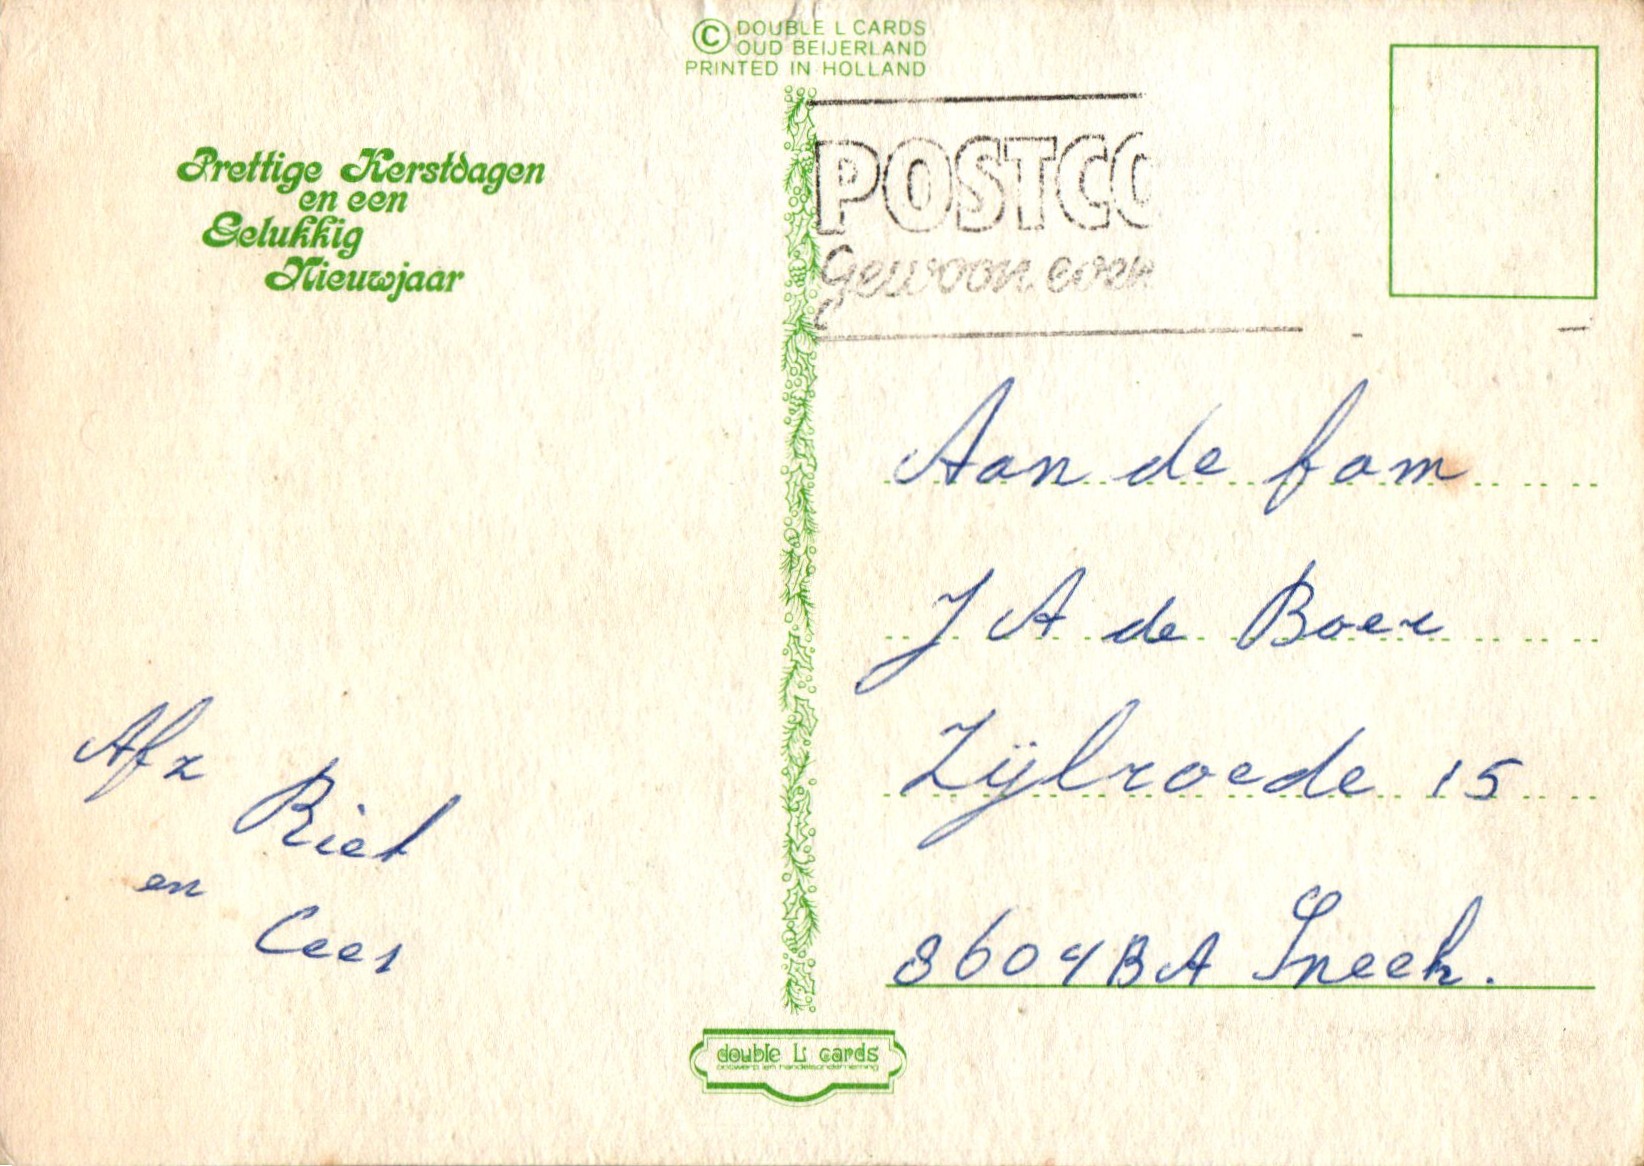 © DOUBLE L CARDS
OUD BEIJERLAND
PRINTED IN HOLLAND
Prettige Kerstdagen
en een
Gelukkig
Nieuwjaar
POSTCO
Gewoon even
Aan de fam
J A de Boer
Zijlroede 15
8604BA Sneek.
Afz
Riet
en
Cees
double L cards
ontwerp en handelsonderneming